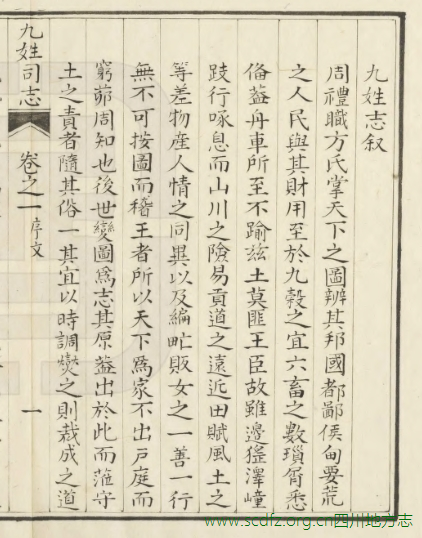 九姓志叙
周禮職方氏掌天下之圖辨其邦國都鄙侯甸要荒
之人民與其財用至於九榖之宜六畜之數瑣屑悉
俻葢舟車所至不踰兹土莫匪王臣故雖邊猺澤㠉
跂行喙息而山川之險易貢道之遠近田賦風土之
等差物產人情之同異以及編甿販女之一善一行
無不可按圖而稽王者所以天下為家不出戸庭而
窮茆周知也後世變圖為志其原葢出於此而蒞守
土之責者隨其俗一其宜以時調燮之則裁成之道
九姓司志
卷之一
序文
一
www.scdfz.org.cn四川地方志